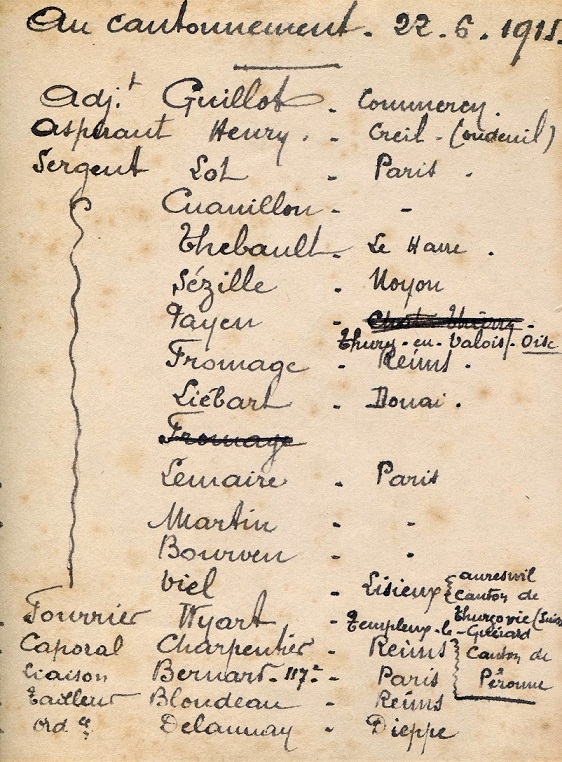 Au cantonnement. 22.6.1915.
Adj.t Guillot - Commercy.
Aspirant Henry. - Creil - (Oudeuil)
Sergent Lot - Paris.
Cuanillon - -
Thebault - Le Havre.
Sézille - Noyon
Payen - Chat. Thierry -
Thury-en-Valois - Oise
Fromage - Reims.
Liébart - Douai.
Fromage
Lemaire - Paris
Martin - -
Bourven - -
Viel - Lisieux
canton de
Thurgovie (Suisse
Fourrier Wyart - Templeux-le-Guérard
Caporal Charpentier - Reims
canton de
Liaison Bernard - 117e - Paris
Péronne
Tailleur Blondeau - Reims
Ord ce Delaunay - Dieppe